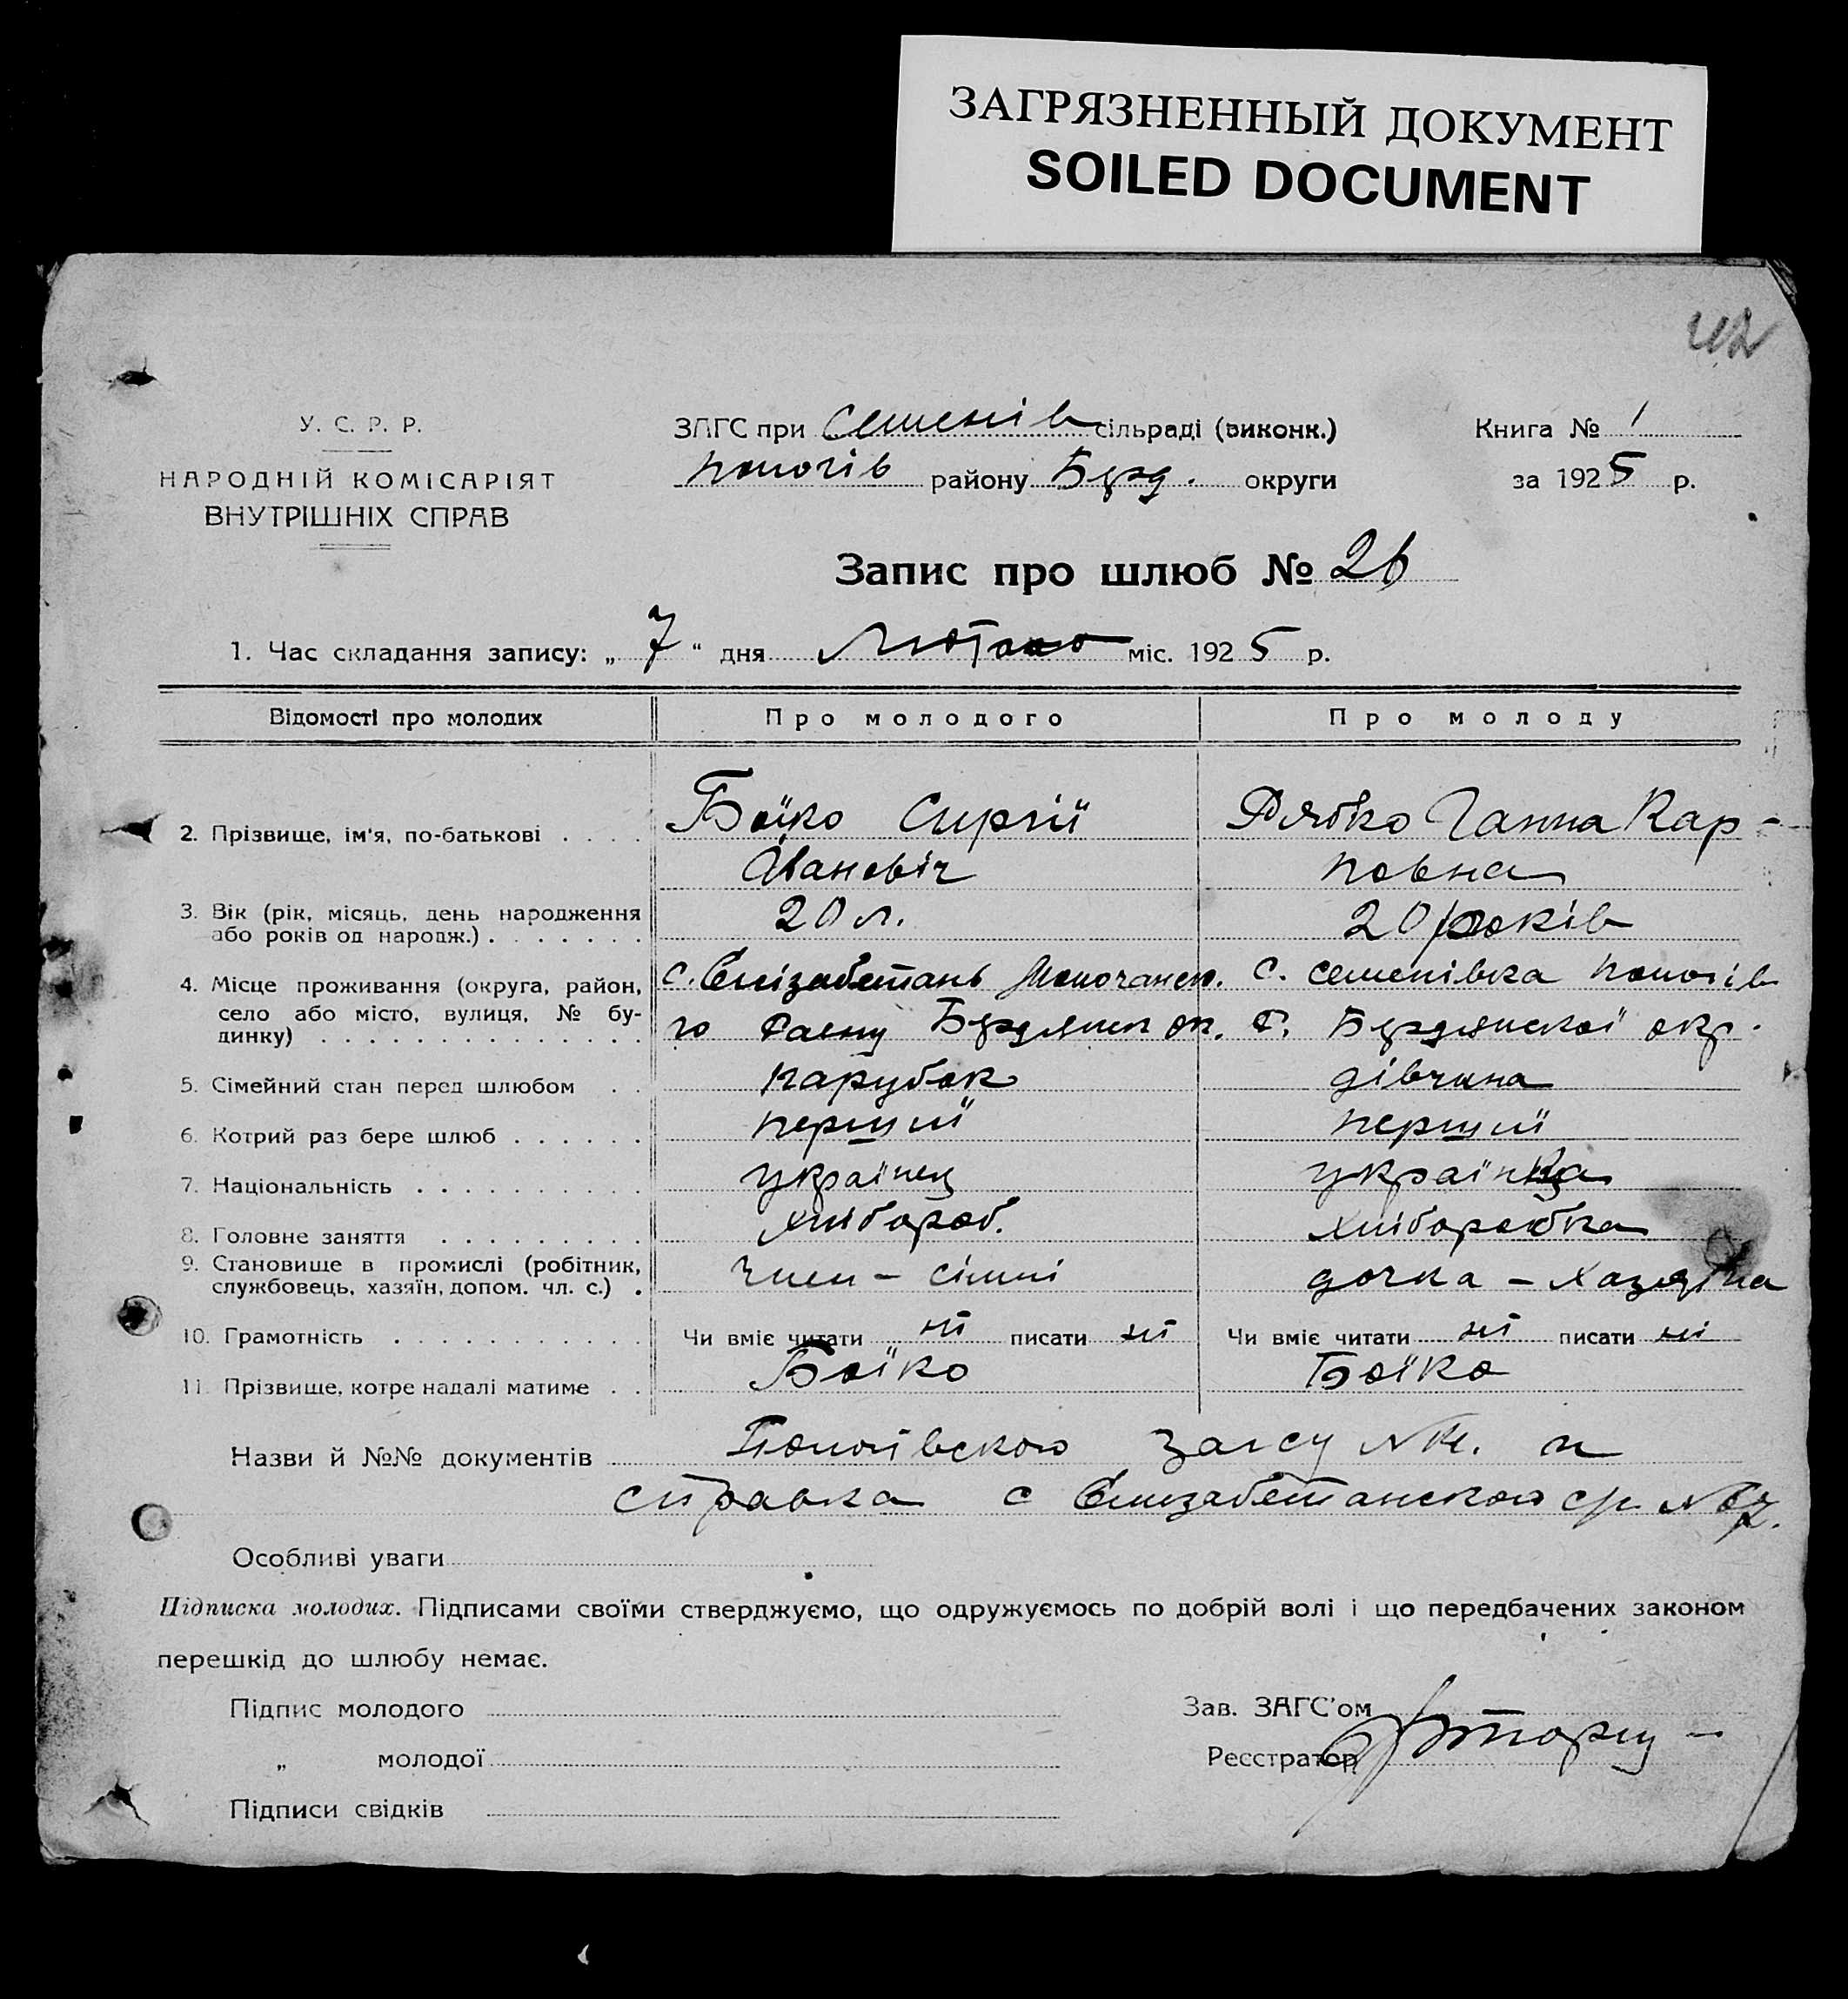 ЗАГРЯЗНЕННЫЙ ДОКУМЕНТ
SOILED DOCUMENT
У. С. Р. Р.
НАРОДНІЙ КОМІСАРІЯТ
ВНУТРІШНІХ СПРАВ
ЗАГС при Семенів сільраді (виконк.)
Пологів району Берд. округи
Книга № 1
за 1925 р.
Запис про шлюб № 26
1. Час складання запису: „ 7 “ дня Лютого міс. 1925 р.
Відомості про молодих Про молодого Про молоду
2. Прізвище, ім'я, по-батькові . . . . Бойко Сиргій Дябко Ганна Кар-
Івановіч повна
3. Вік (рік, місяць, день народження 20 л. 20 років
або років од народж.) . . . . . . .
4. Місце проживання (округа, район, с. Єлізабетань с. Семенівка Пологів
село або місто, вулиця, № бу- го Раену Бердянск ок. Р. Бердянської окр.
динку) . . . . . . . . . . . . . .
5. Сімейний стан перед шлюбом . . парубок дівчина
6. Котрий раз бере шлюб . . . . . . перший перший
7. Національність . . . . . . . . . українец українка
8. Головне заняття . . . . . . . . . хлібороб. хліборобка
9. Становище в промислі (робітник, Член - сімі дочка - хазяіна
службовець, хазяїн, допом. чл. с.) .
10. Грамотність . . . . . . . . . . . Чи вміє читати ні писати ні Чи вміє читати ні писати ні
11. Прізвище, котре надалі матиме . . Бойко Бойко
Назви й №№ документів Пологівского Загсу и
справка с Єлизабетанского с/р
Особливі уваги
Підписка молодих. Підписами своїми стверджуємо, що одружуємось по добрій волі і що передбачених законом
перешкід до шлюбу немає.
Підпис молодого
„ молодої
Підписи свідків
Зав. ЗАГС'ом
Реєстратор